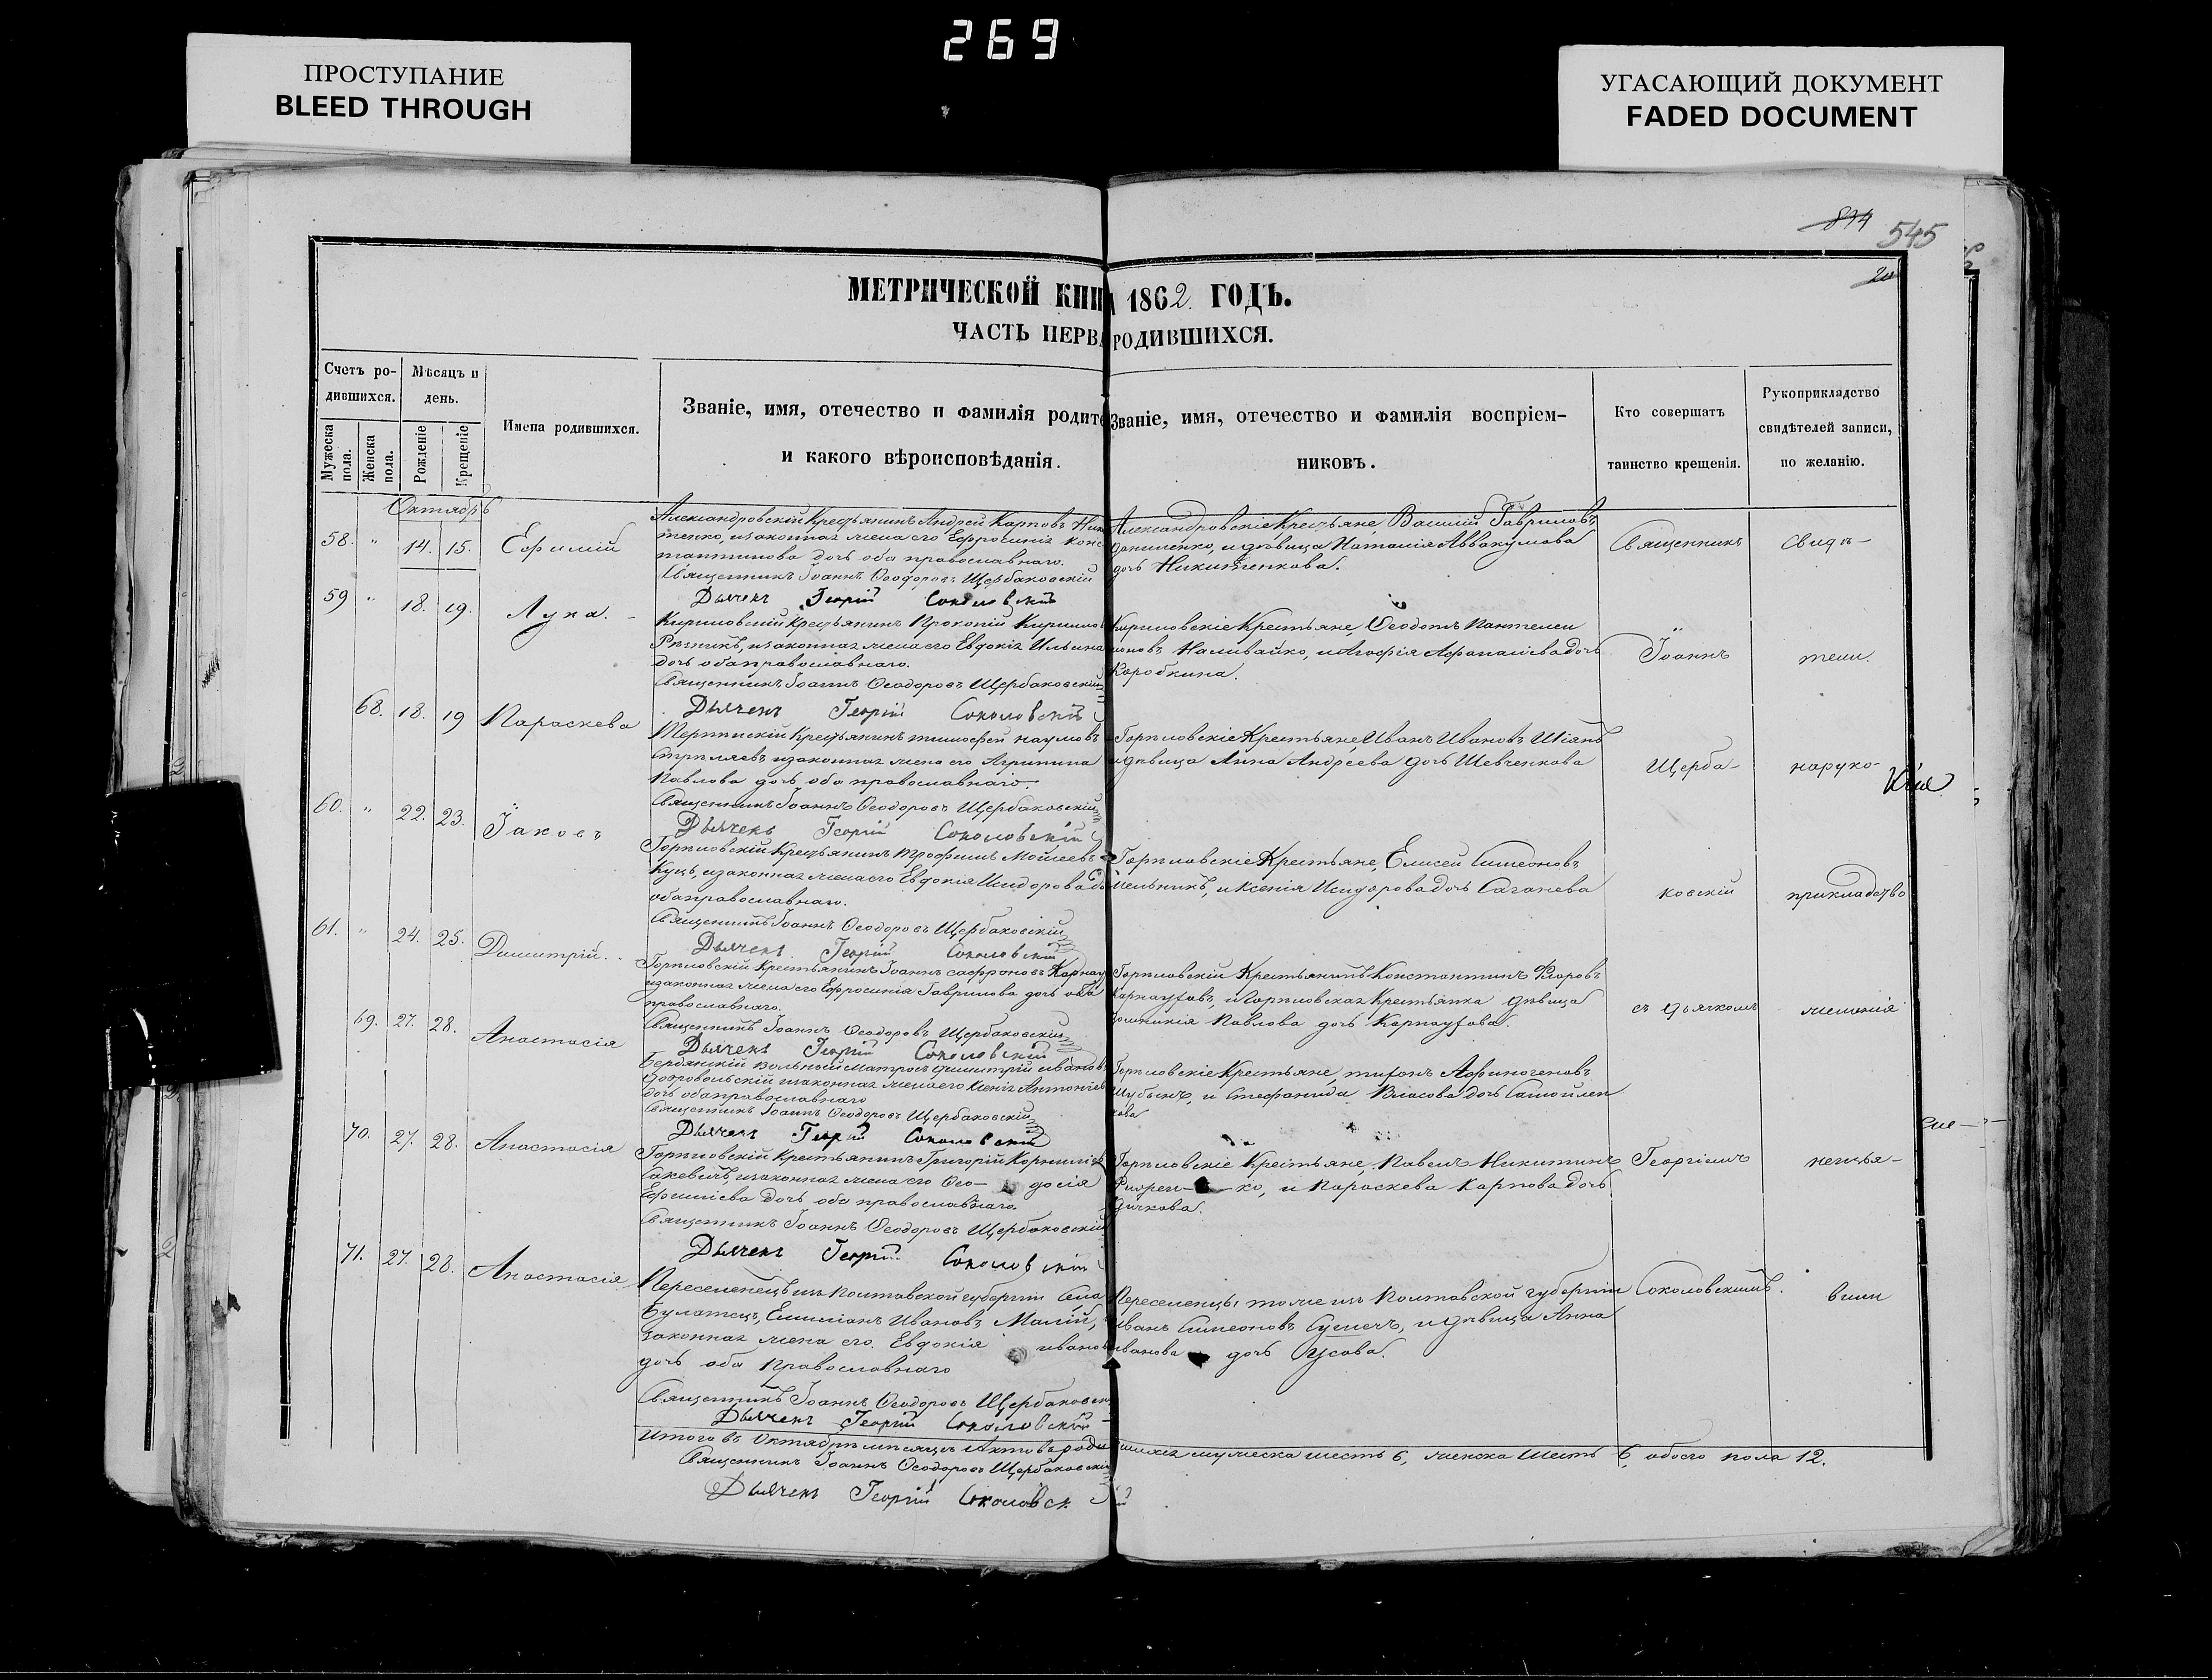 269
ПРОСТУПАНИЕ
BLEED THROUGH
УГАСАЮЩИЙ ДОКУМЕНТ
FADED DOCUMENT
545
МЕТРИЧЕСКОЙ КНИ 1862. ГОДЪ.
ЧАСТЬ ПЕРВА РОДИВШИХСЯ.
Счетъ ро-
дившихся.
Мѣсяцъ и
день.
Мужеска
пола.
Женска
пола.
Рожденіе
Крещеніе
Имена родившихся.
Званіе, имя, отечество и фамилія родите
и какого вѣроисповѣданія.
Званіе, имя, отечество и фамилія воспріем-
никовъ.
Кто совершатъ
таинство крещенія.
Рукоприкладство
свидѣтелей записи,
по желанію.
Октябрь
58. " 14. 15. Ефимій
Александровскій Крестьянинъ Андрей Карповъ Ники
тенко, изаконная жена его Ефросинія Конс
тантинова дочь оба православнаго.
Священникъ Іоаннъ Ѳеодоровъ Щербаковскій
Дьячекъ Георгій Соколовскій
Александровскіе Крестьяне, Василій Гавриловъ
и дѣвица Наталія Аввакумова
дочь Никитенкова.
Священникъ
Свидѣ-
59 " 18. 19. Лука.
Кириловскій Крестьянинъ Прокопій Кирилов
Рѣзникъ, изаконная жена его Евдокія Ильина
дочь оба православнаго.
Священникъ Іоаннъ Ѳеодоровъ Щербаковскій
Дьячекъ Георгій Соколовскій
Кириловскіе Крестьяне, Ѳеодотъ Пантелеи
моновъ Наливайко, и Агафія Афанасіева дочь
Коробкина.
Іоаннъ
тели.
68. 18. 19 Параскева
Крестьянинъ Тимофей Наумовъ
изаконная жена его Агрипина
Павлова дочь оба православнаго.
Священникъ Іоаннъ Ѳеодоровъ Щербаковскій
Дьячекъ Георгій Соколовскій
Горѣловскіе Крестьяне, Иванъ Ивановъ
и дѣвица Анна Андреева дочь Шевченкова
Щерба-
наруко-
60. " 22. 23. Іаковъ
Горѣловскій Крестьянинъ Трофимъ Моисеевъ
Куцъ, изаконная жена его Евдокія Исидорова
оба православнаго.
Священникъ Іоаннъ Ѳеодоровъ Щербаковскій
Дьячекъ Георгій Соколовскій
Горѣловскіе Крестьяне, Елисей Симеоновъ
Мельникъ, и Ксенія Исидорова дочь Саганева
ковскій
прикладство
61. " 24. 25. Димитрій.
Горѣловскій Крестьянинъ Іоаннъ Сафроновъ Карнау
изаконная жена его Ефросинія Гаврилова дочь оба
православнаго.
Священникъ Іоаннъ Ѳеодоровъ Щербаковскій
Дьячекъ Георгій Соколовскій
Горѣловскій Крестьянинъ Константинъ Флоровъ
Карнауховъ, и Горѣловская Крестьянка дѣвица
Домникія Павлова дочь Карнаухова.
съ дьякомъ
69. 27. 28. Анастасія
Бердянскій вольный матросъ Димитрій Ивановъ
Добровольскій изаконная жена его Ксенія Антоніев
дочь оба православнаго
Священникъ Іоаннъ Ѳеодоровъ Щербаковскій
Дьячекъ Георгій Соколовскій
Горѣловскіе Крестьяне, Тихонъ Афиногеновъ
и Стефанида Власова дочь Самойлен
кова
70. 27. 28. Анастасія
Горѣловскій Крестьянинъ Григорій Корниліев
изаконная жена его Ѳео- досія
Ефиміева дочь оба православнаго.
Священникъ Іоаннъ Ѳеодоровъ Щербаковскій
Дьячекъ Георгій Соколовскій
Горѣловскіе Крестьяне, Павелъ Никитинъ
и Параскева Карпова дочь
Дичкова.
Георгіемъ
71. 27. 28. Анастасія
Переселенецъ изъ Полтавской губерніи села
Емиліанъ Ивановъ Малій,
законная жена его Евдокія иванов
дочь оба православнаго
Священникъ Іоаннъ Ѳеодоровъ Щербаковск
Дьячекъ Георгій Соколовскій
Переселенцы тоже изъ Полтавской губерніи
Иванъ Симеоновъ и дѣвица Анна
Иванова дочь Усова.
Соколовскимъ.
Итого въ Октябрѣ мѣсяцѣ родившихся мужеска шесть 6, женска Шесть 6, обоего пола 12.
Священникъ Іоаннъ Ѳеодоровъ Щербаковскій
Дьячекъ Георгій Соколовскій